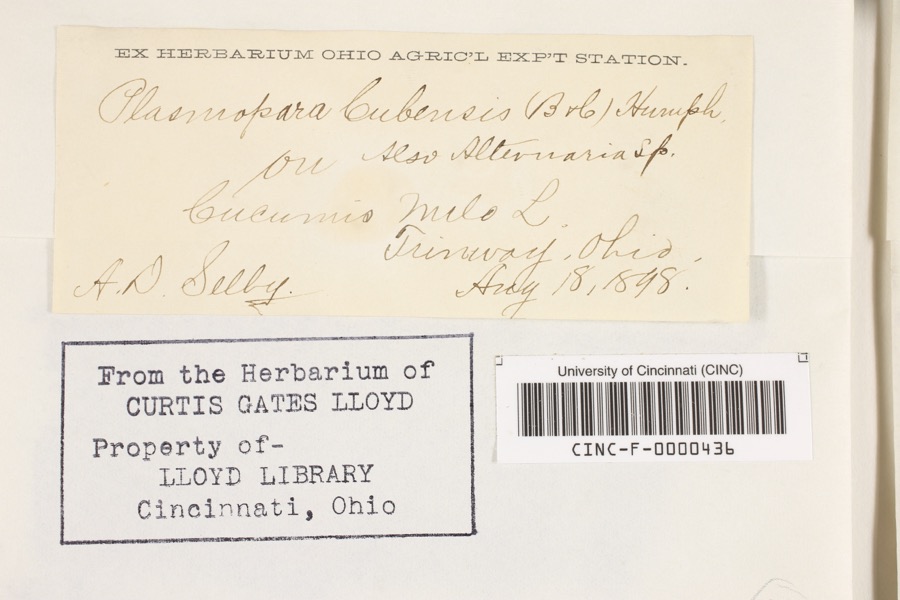 EX HERBARIUM OHIO AGRIC'L EXP'T STATION.
Plasmopara Cubensis (B&C) Humph.
on Also Alternaria sp.
Cucumis Melo L.
Trinway, Ohio,
A.D. Selby. Aug 18, 1898.
From the Herbarium of
CURTIS GATES LLOYD
Property of-
LLOYD LIBRARY
Cincinnati, Ohio
University of Cincinnati (CINC)
CINC-F-0000436